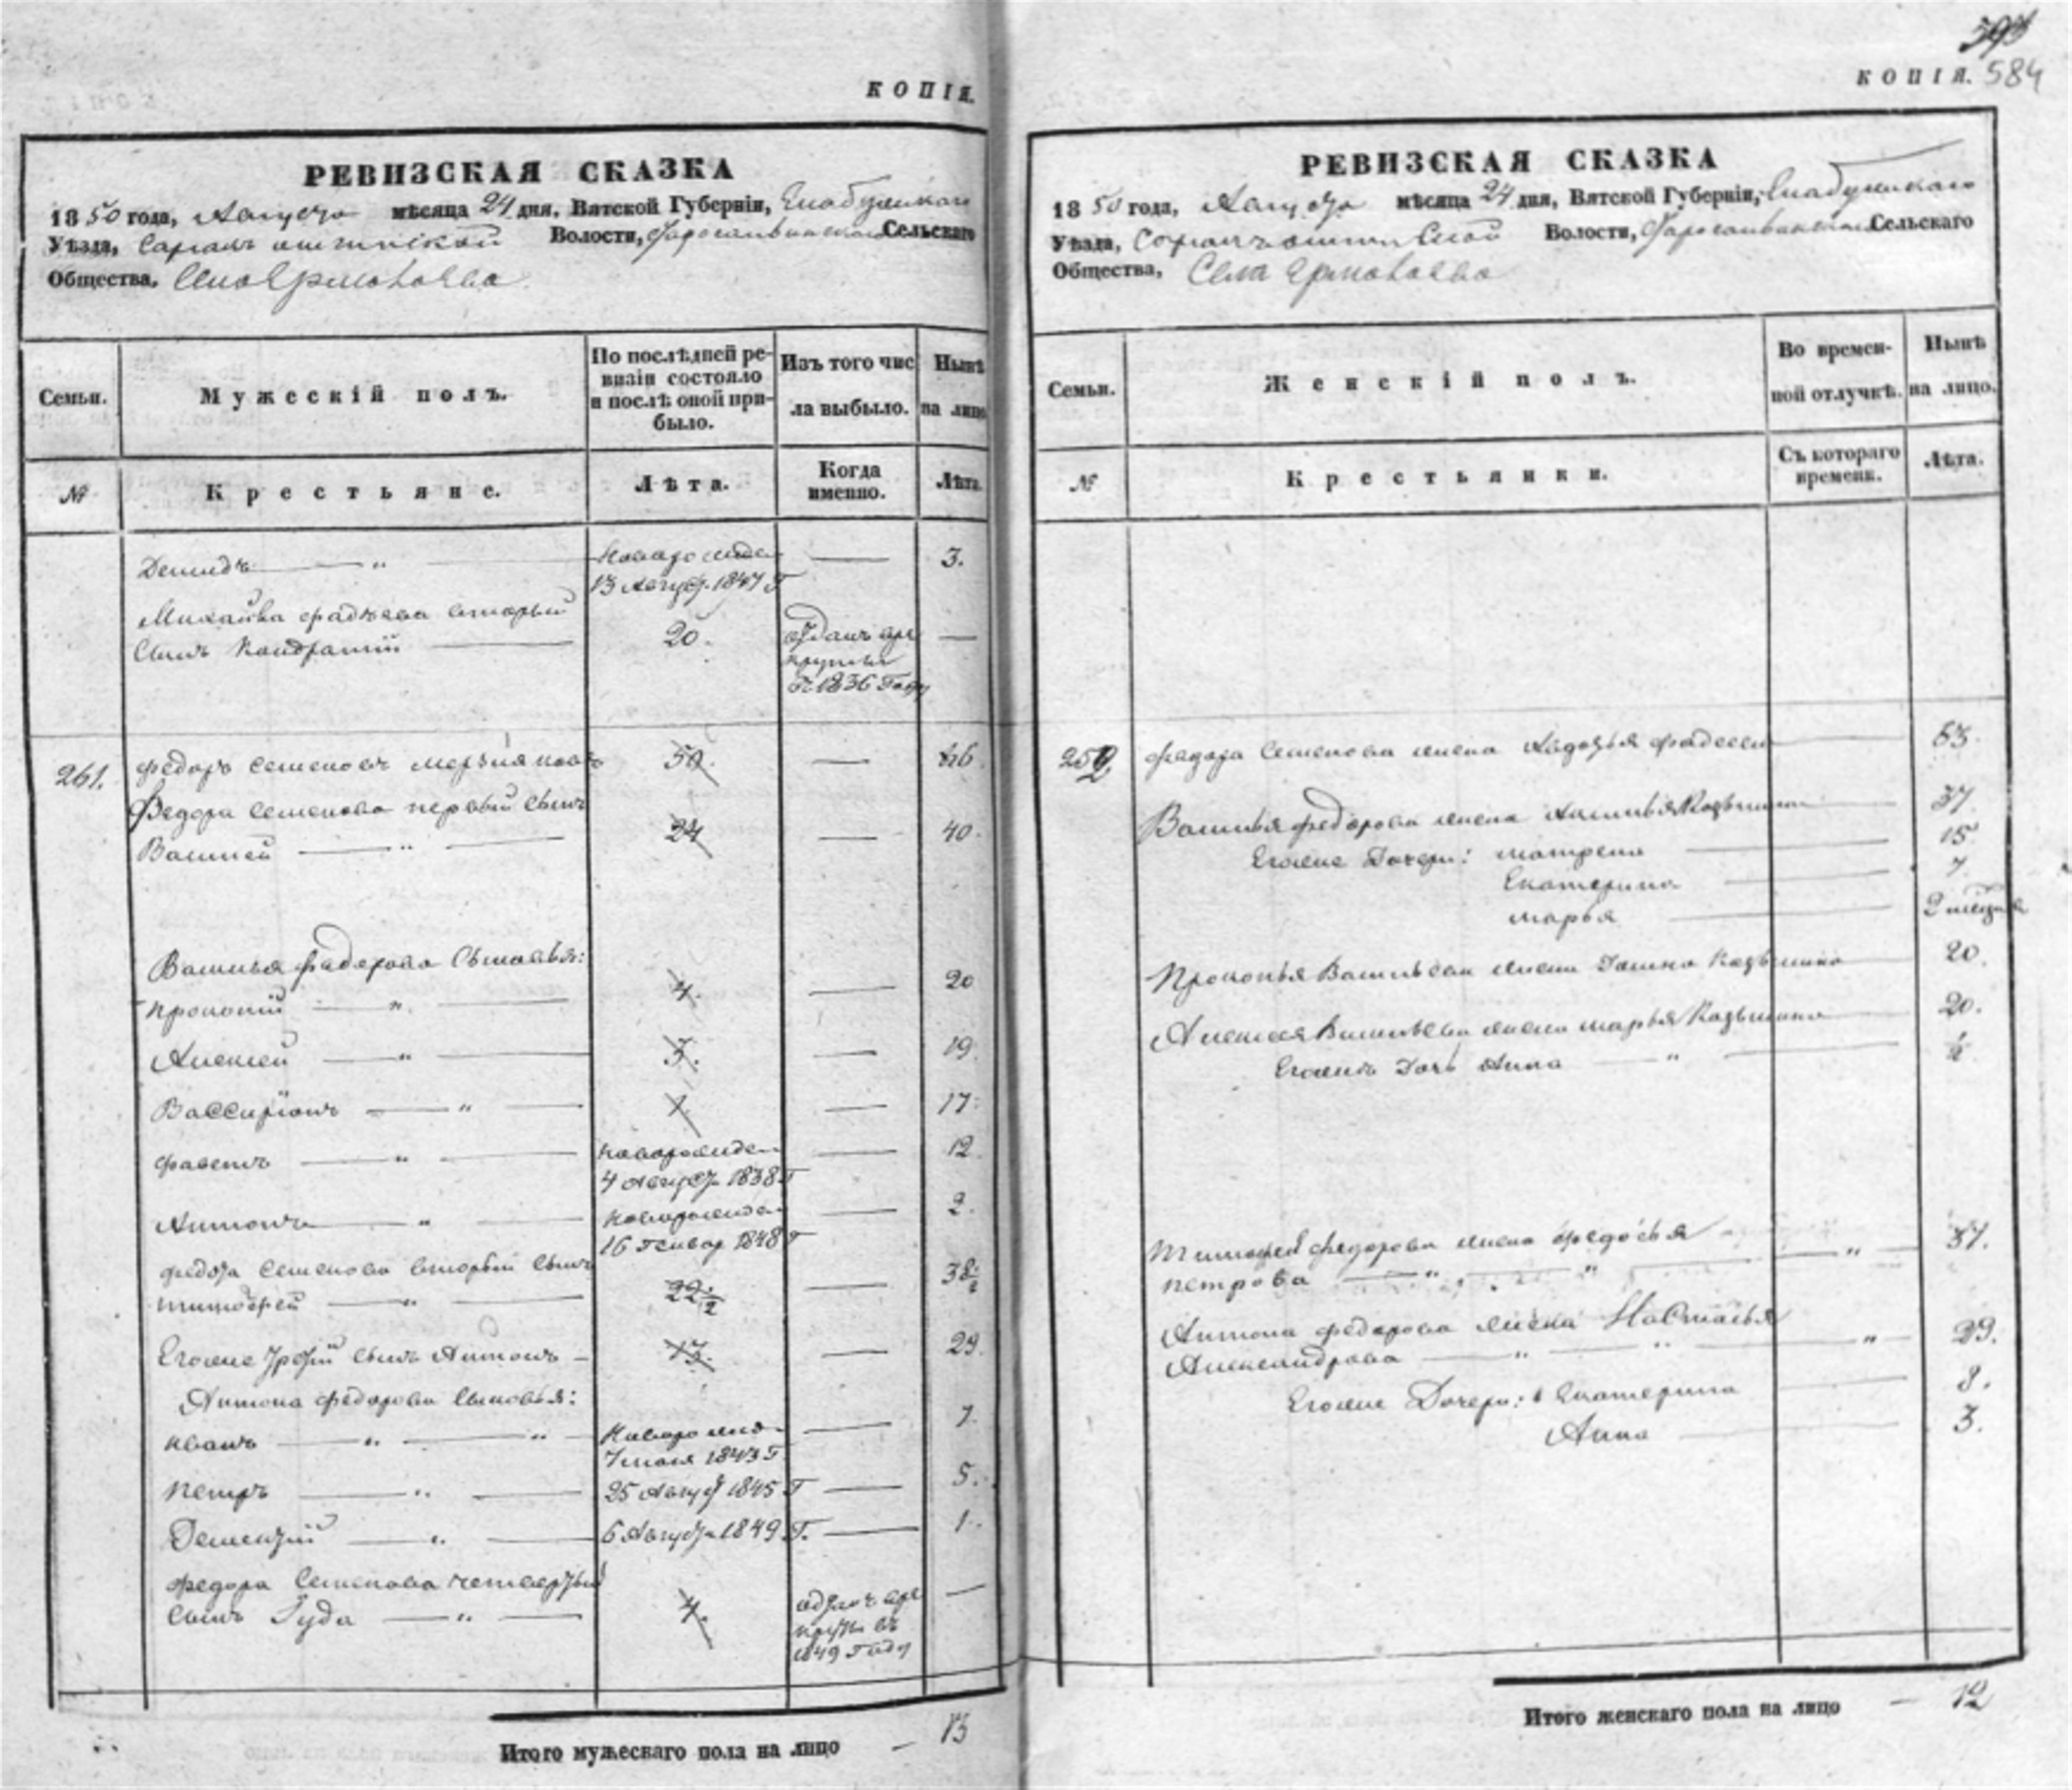 КОПІЯ.
РЕВИЗСКАЯ СКАЗКА
1850 года, Августа мѣсяца 24 дня, Вятской Губерніи, Елабужскаго
Уѣзда, Волости, Сельскаго
Общества,
Семьи.
Мужескій полъ.
По послѣдней ре-
визіи состояло
и послѣ оной при-
было.
Изъ того чис
ла выбыло.
Нынѣ
на лицо
№
Крестьяне.
Лѣта.
Когда
именно.
Лѣта.
Демидъ — " — новорожден — 3.
13 Август. 1847 Г
Михайла Фадѣева вторый
сынъ Кондратій — 20. отданъ въ ре —
круты
въ 1836 Году
261. Федоръ Семеновъ 50. —
Федора Семенова первый сынъ
Василей — " — 24 — 40.
Василья Федорова сыновья:
Прокопій — " — 4. — 20
Алексей — " — 3. — 19.
Вассиріанъ — " — 1. — 17.
— " — новорожден — 12.
4 Августа 1838 Г
Антонъ — " — новорожден — 2.
16 Генвар 1848 Г
Федора Семенова вторый сынъ
Тимофей — " — 22 1/2 — 38 1/2
Егоже третій сынъ Антонъ — 13. — 29.
Антона Федорова сыновья:
Иванъ — " — " — Новорожд — 7.
1843 Г.
Петръ — " — 25 Август 1845 Г — 5.
Дементій — " — 6 Августа 1849 Г. — 1.
Федора Семенова четвертый
сынъ Іуда — " — 4. отданъ въ ре —
круты въ
1849 Году
Итого мужескаго пола на лицо — 13
КОПІЯ. 584
РЕВИЗСКАЯ СКАЗКА
1850 года, Августа мѣсяца 24 дня, Вятской Губерніи, Елабужскаго
Уѣзда, Волости, Сельскаго
Общества, Села
Семьи.
Женскій полъ.
Во времен-
ной отлучкѣ.
Нынѣ
на лицо.
№
Крестьянки.
Съ котораго
времени.
Лѣта.
Федора Семенова жена Авдотья Фадеева —
Василья Федорова жена Козьмина — 37.
Егоже Дочери: Матрена — 15.
Екатерина — 7
Марья — 2
Прокопья Васильева жена Козьмина — 20.
Алексея Васильева жена Марья Козьмина — 20.
Егожъ Дочь Анна — " — 1/2
Тимофея Федорова жена Федосья
Петрова — " — " — " — 37.
Антона Федорова жена Настасья
Александрова — " — " — " — 29.
Егоже Дочери: Екатерина — 8.
Анна — 3.
Итого женскаго пола на лицо — 12